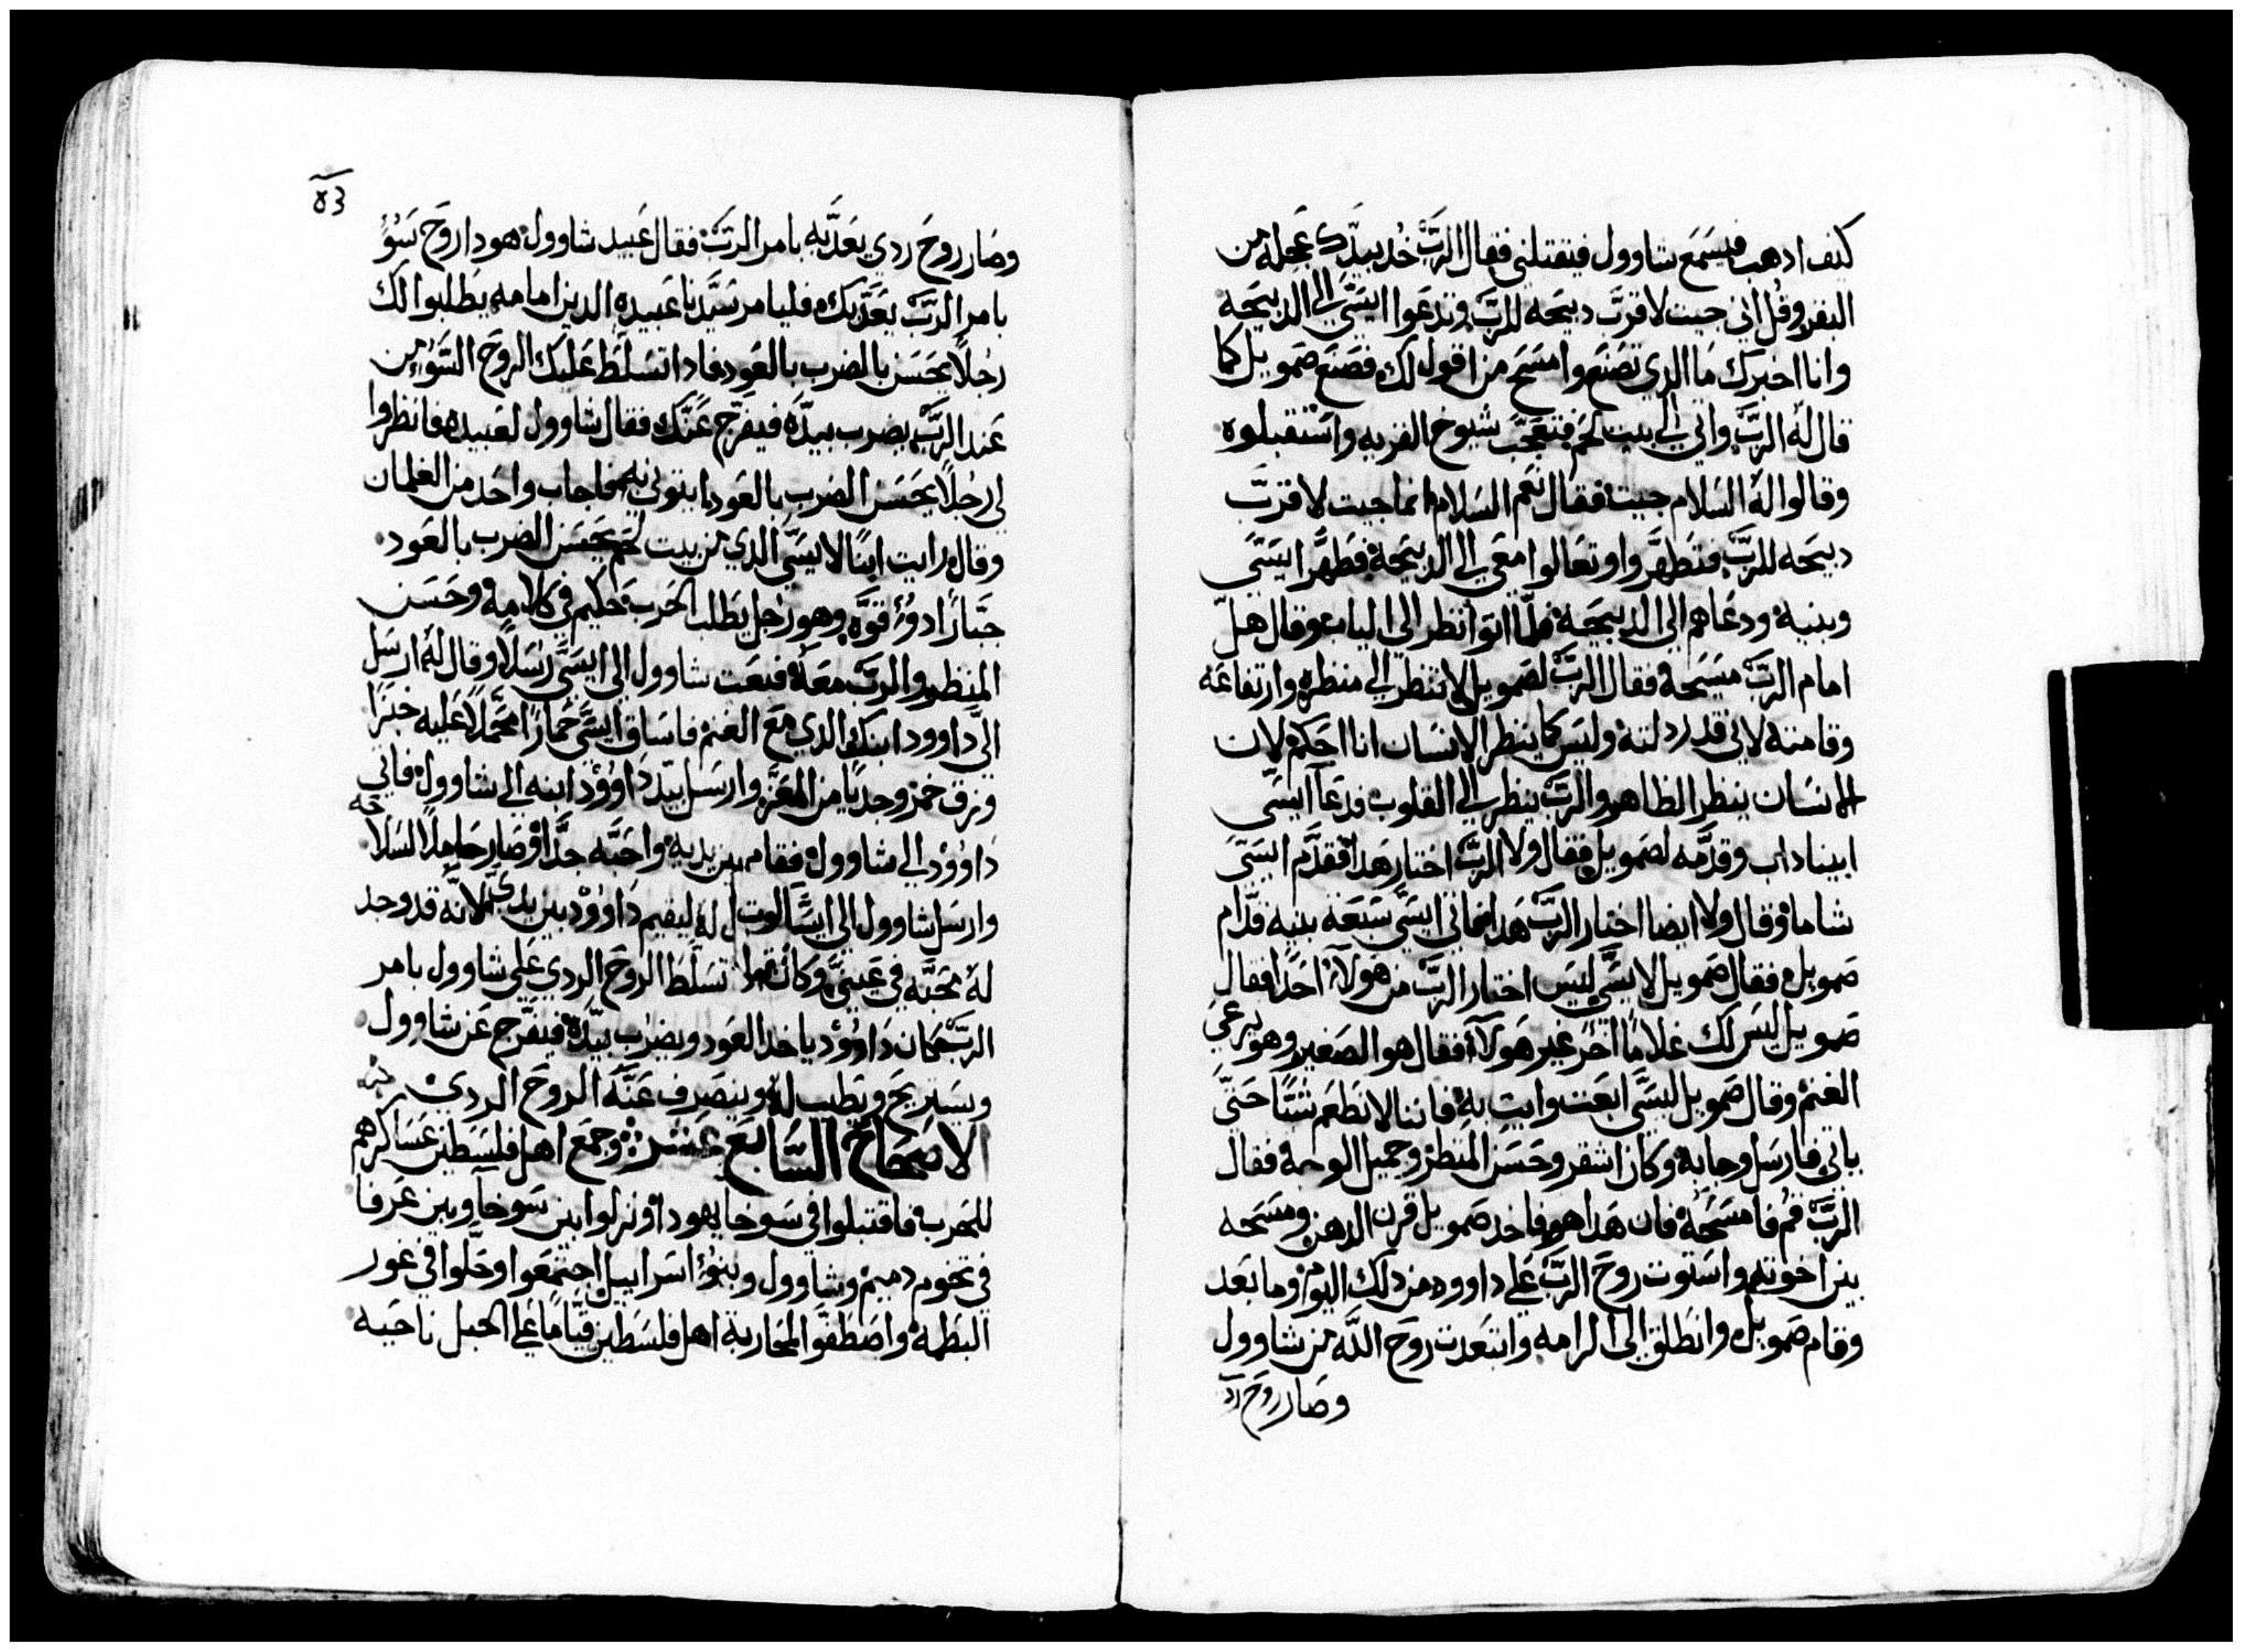 كيف ادهب فيسمع شاوول فيقتلني فقال الربّ خُد بيدك عجلة من
البقر وقُل اني جيت لاقرّب دبيحه للربّ وتدعوا ايسّى الى الدبيحه
وانا اخبرك ما الدي تصنع وامسح من اقول لك فصنع صمويل كما
قال له الربّ واتي الى بيت لحم فتعجّب شيوخ القريه واستقبلوه
وقالوا له السلام جيت فقال نعم السلام انما جيت لاقرّب
دبيحه للربّ فتطهّروا وتعالوا معي الى الدبيحة فطهّر ايسّى
وبنيه ودعاهم الى الدبيحه فلمّا اتوا نظر الى الياب وقال هل
امام الربّ مسيحه فقال الربّ لصمويل لا تنظر الى منظره وارتفاعه
وقامته لاني قد ردلته وليس كما ينظر الانسان انا احكم لان
الانسان ينظر الظاهر والربّ ينظر الى القلوب فدعا ايسّى
ابيناداب وقدّمه لصمويل فقال ولا الربّ اختار هدا فقدّم ايسّى
شاما وقال ولا ايضا اختار الربّ هدا فاتي ايسّى سبعة بنيه قدّام
صمويل فقال صمويل لايسّى ليس اختار الربّ من هولاء احدا فقال
صمويل ليس لك غلامًا اخر غير هولاء فقال هو الصغير وهو يرعى
الغنم وقال صمويل ليسّى ابعت وايتِ به فاننا لا نطعم شيًّا حتّى
ياتي فارسل وجا به وكان اشقر وحسن المنظر وجميل الوجه فقال
الربّ قُم فامسحه فان هدا هو فاخد صمويل قرن الدهن ومسحه
بين اخوته واستوت روح الربّ على داوود من دلك اليوم وما بعد
وقام صمويل وانطلق الى الرامه وابتعدت روح اللّه من شاوول
وصار روح رد
83
وصار روح ردي يعدّبه بامر الربّ فقال عبيد شاوول هودا روح سوُء
بامر الربّ يعدّبك فليامر سيّدنا عبيده الدين امامه يطلبوا لك
رجلًا يحسن بالضرب بالعود فادا تسلّط عليك الروح السوء من
عند الربّ يضرب بيدّه فيفرّج عنّك فقال شاوول لعبيده فانظروا
لي رجلًا يحسن الضرب بالعود ايتوني به فاجاب واحد من الغلمان
وقال رايت ابنًا لايسّى الدي من بيت لحم يحسن الضرب بالعود
جبّارًا دو قوّه وهو رجل يطلب الحرب حكيم في كلامه وحسن
المنظر والربّ معه فبعت شاوول الى ايسّى رسلًا وقال له ارسل
الىّ داوود ابنك الدي مع الغنم فاساق ايسّى حمارًا محمّلًا عليه خبزًا
وزق خمر وجديًا من المعز وارسل بيد داوود ابنه الى شاوول فاتي
داوود الى شاوول فقام بين يديه واحبّه جدًّا وصار حاملًا السلاحه
وارسل شاوول الى ايسّا ل له ليقيم داوود بين يديّ لانّه قد وجد
له محبّه في عينيّ وكان تسلّط الروح الردي على شاوول بامر
الربّ كان داوود ياخد العود ويضرب بيّده فيفرّج عن شاوول
ويستريح ويطيب له وينصرف عنّه الروح الردي
الاصحاح السّابع عشر وجمع اهل فلسطين عساكرهم
للحرب فاقتبلوا في سوخا يهودا ونزلوا بين سوخا وبين عرفا
في تخوم دميم وشاوول وبنوُ اسراييل اجتمعوا وحلّوا في غور
البطمه واصطفّوا لمحاربة اهل فلسطين قيّامًا على الجبل ناحيه